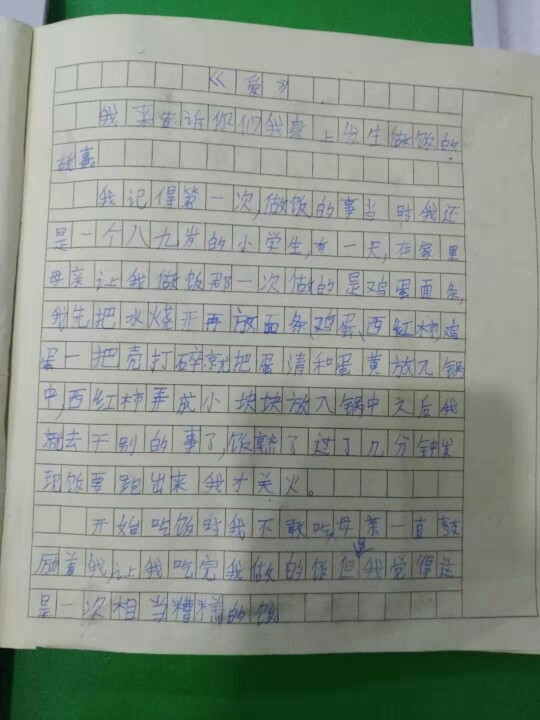 《爱》
我来告诉你们我身上发生做饭的
故事
我记得第一次,做饭的事当时我还
是一个八九岁的小学生,有一天,在家里
母亲让我做饭那一次做的是鸡蛋面条,
我先把水烧开再放面条、鸡蛋、西红柿,鸡
蛋一把壳打碎就把蛋清和蛋黄放入锅
中,西红柿弄成小块块放入锅中之后我
就去干别的事了,饭熟了过了几分钟发
现饭要跑出来我才关火。
开始吃饭时我不敢吃,母亲一直鼓
励着我,让我吃完我做的饭但是我觉得这
是一次相当糟糕的饭